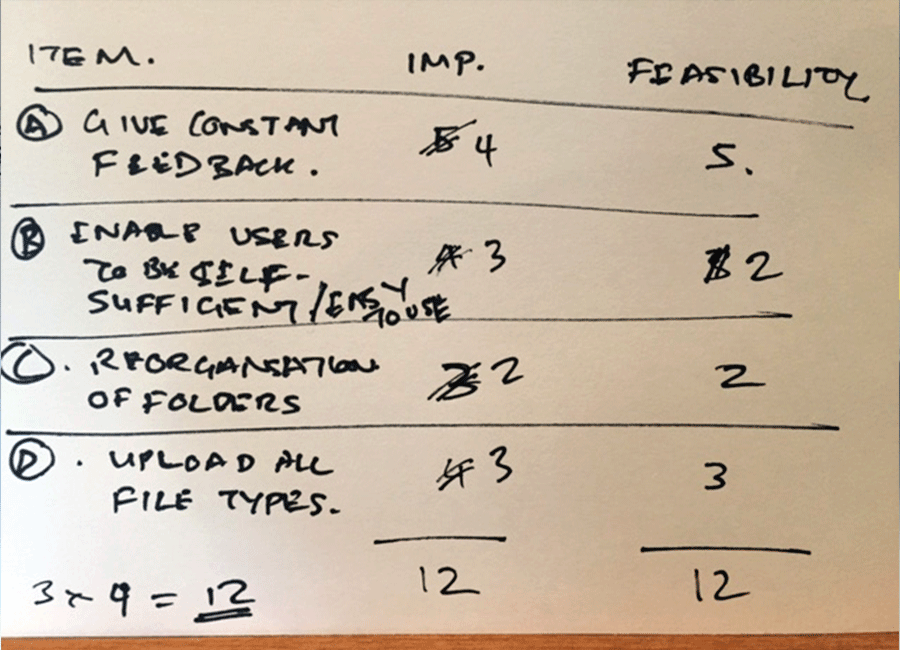 ITEM. IMP. FEASIBILITY
(A) GIVE CONSTANT
FEEDBACK. 4 5.
(B) ENABLE USERS
TO BE SELF- 3 2
SUFFICIENT/EASY
TO USE
(C). REORGANISATION 2 2
OF FOLDERS
(D). UPLOAD ALL 3 3
FILE TYPES.
12 12
3 × 4 = 12